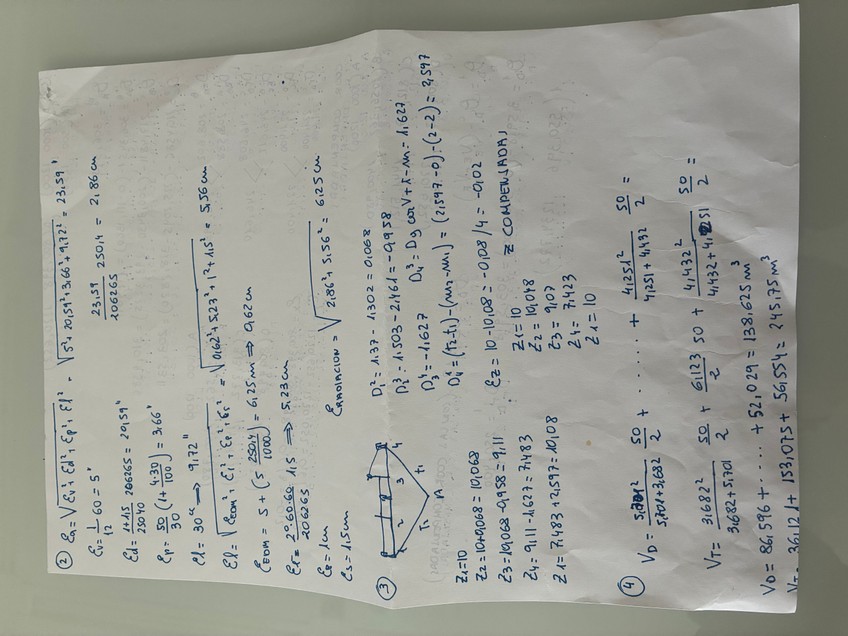 ② Ea = √Ev² + Ed² + Ep² + El² = √5² + 20,59² + 3,66² + 9,72² = 23,59"
Ev = 1/12 60 = 5"
23,59/206265 250,4 = 2,86 cm
Ed = 1+1,5/25040 206265 = 20,59"
Ep = 50/30 (1 + 4·30/100) = 3,66"
El = 30ᶜᶜ → 9,72"
El = √EEDM² + Ei² + Ep² + Es² = √0,62² + 5,23² + 1² + 1,5² = 5,56 cm
EEDM = 5 + (5 250,4/1000) = 6,25 m ⇒ 0,62 cm
Ei = 2º·60·60/206265 1,5 ⇒ 5,23 cm
Ep = 1 cm
Es = 1.5 cm
ERADIACION = √2,86² + 5,56² = 6,25 cm
③
1 2 3 4 T1 t1 A
D₁² = 1.37 - 1.302 = 0,068
D₂³ = 1.503 - 2,461 = -0,958
D₃⁴ = -1,627
D₄³ = Dg cos V + i - m = 1,627
D₄¹ = (t2-t1) - (m2-m1) = (2,597 - 0) - (2-2) = 2,597
Z1=10
Z2 = 10+0,068 = 10,068
Z3 = 10,068 - 0,958 = 9,11
Z4 = 9,11 - 1,627 = 7,483
Z1 = 7,483 + 2,597 = 10,08
Ez = 10 - 10,08 = -0,08/4 = -0,02
Z COMPENSADA,
Z1 = 10
Z2 = 10,048
Z3 = 9,07
Z4 = 7,423
Z1 = 10
④ VD = 5,701²/5,701+3,682 50/2 + ..... + 4,251²/4,251+4,432 50/2 =
VT = 3,682²/3,682+5,701 50/2 + 6,123/2 50 + 4,432²/4,432+4,251 50/2 =
VD = 86,596 + ..... + 52,029 = 138,625 m³
VT = 36,121 + 153,075 + 56,554 = 245,75 m³